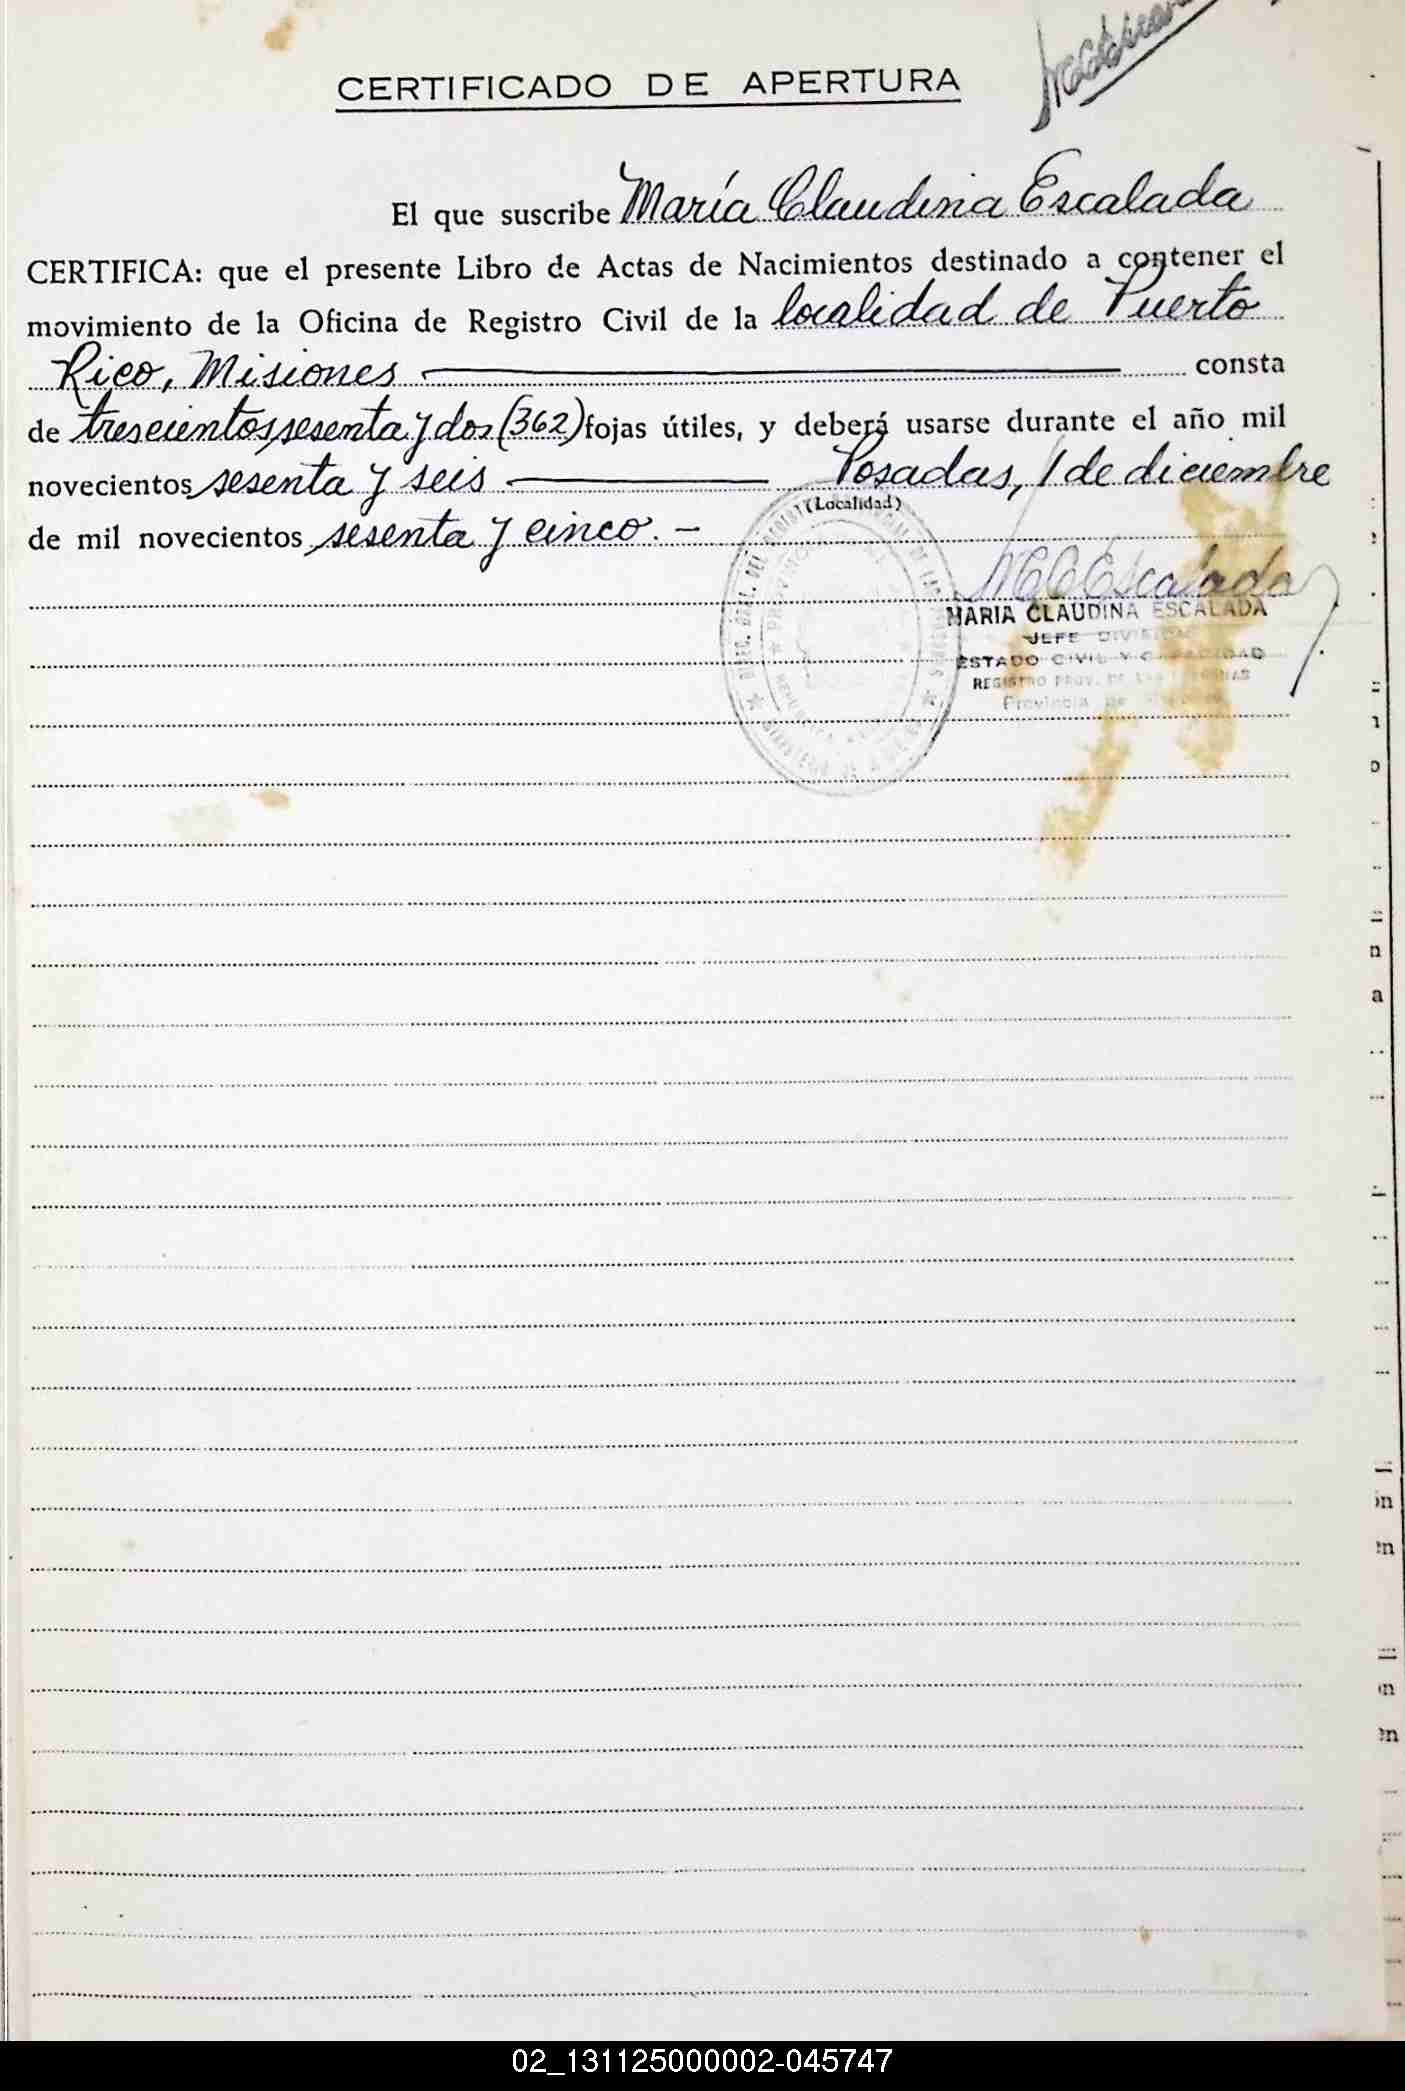 CERTIFICADO DE APERTURA
El que suscribe María Claudina Escalada
CERTIFICA: que el presente Libro de Actas de Nacimientos destinado a contener el
movimiento de la Oficina de Registro Civil de la localidad de Puerto
Rico, Misiones consta
de trescientos sesenta y dos (362) fojas útiles, y deberá usarse durante el año mil
novecientos sesenta y seis Posadas, 1 de diciembre
(Localidad)
de mil novecientos sesenta y cinco. -
MCEscalada
MARIA CLAUDINA ESCALADA
JEFE DIVISION
ESTADO CIVIL Y CAPACIDAD
REGISTRO PROV. DE LAS PERSONAS
Provincia de
02_131125000002-045747